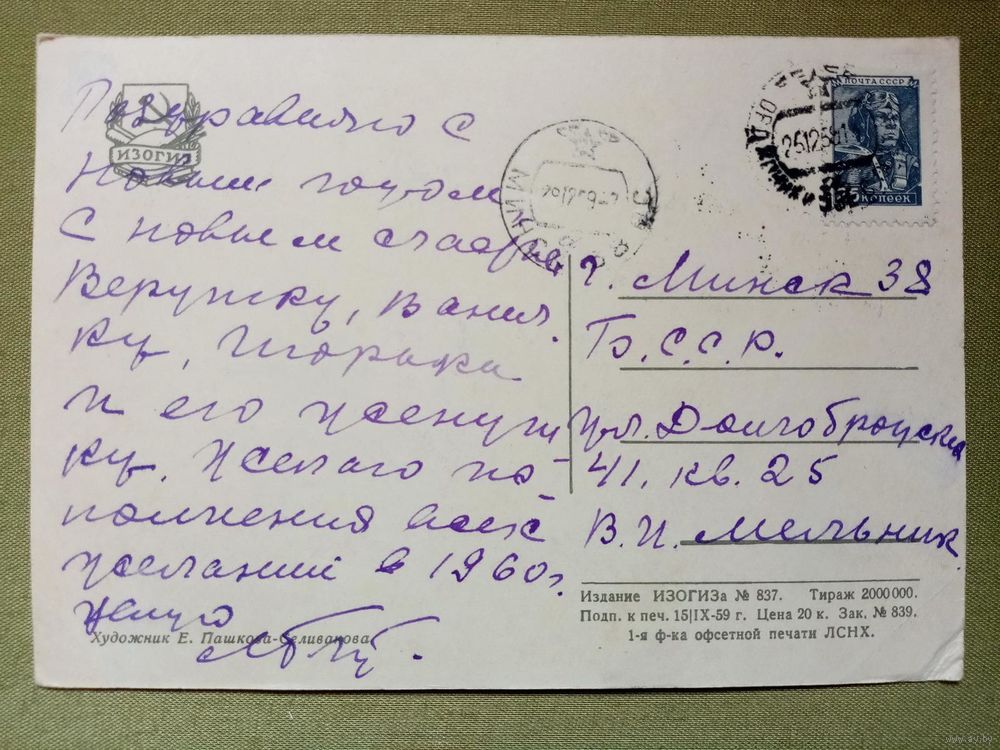 Поздравляю с
Новым годом
С новым счастьем
Верушку, Ванич
ку, Игорька
и его женуш
ку. Желаю ис-
полнения всех
желаний в 1960г.
Целую
ИЗОГИЗ
Художник Е. Пашкова-Селиванова
ПОЧТА СССР
25 КОПЕЕК
МИНСК
г. Минск 38
Б.С.С.Р.
ул. Долгобродская
41. кв. 25
В.И. Мельник
Издание ИЗОГИЗа № 837. Тираж 2000000.
Подп. к печ. 15|IX-59 г. Цена 20 к. Зак. № 839.
1-я ф-ка офсетной печати ЛСНХ.
www.ay.by